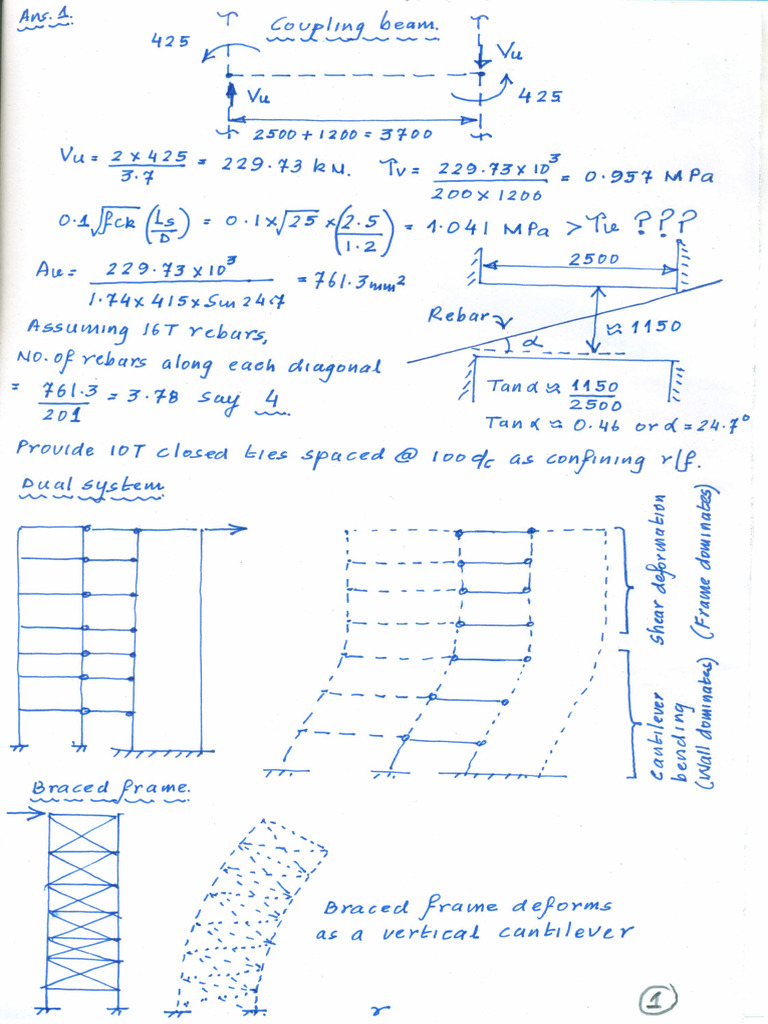 Ans. 1.
Coupling beam.
425
Vu
Vu
425
2500 + 1200 = 3700
Vu = 2 x 425 / 3.7 = 229.73 kN. τv = 229.73 x 10³ / 200 x 1200 = 0.957 MPa
0.1 √fck (Ls/D) = 0.1 x √25 x (2.5/1.2) = 1.041 MPa > τv ???
Av = 229.73 x 10³ / 1.74 x 415 x Sin 24.7 = 761.3 mm²
2500
Rebar
α
≈ 1150
Assuming 16T rebars,
No. of rebars along each diagonal
= 761.3 / 201 = 3.78 say 4
Tan α ≈ 1150 / 2500
Tan α ≈ 0.46 or α = 24.7°
Provide 10T closed ties spaced @ 100 c/c as confining r/f.
Dual system
Shear deformation
(Frame dominates)
Cantilever
bending
(Wall dominates)
Braced frame.
Braced frame deforms
as a vertical cantilever
1